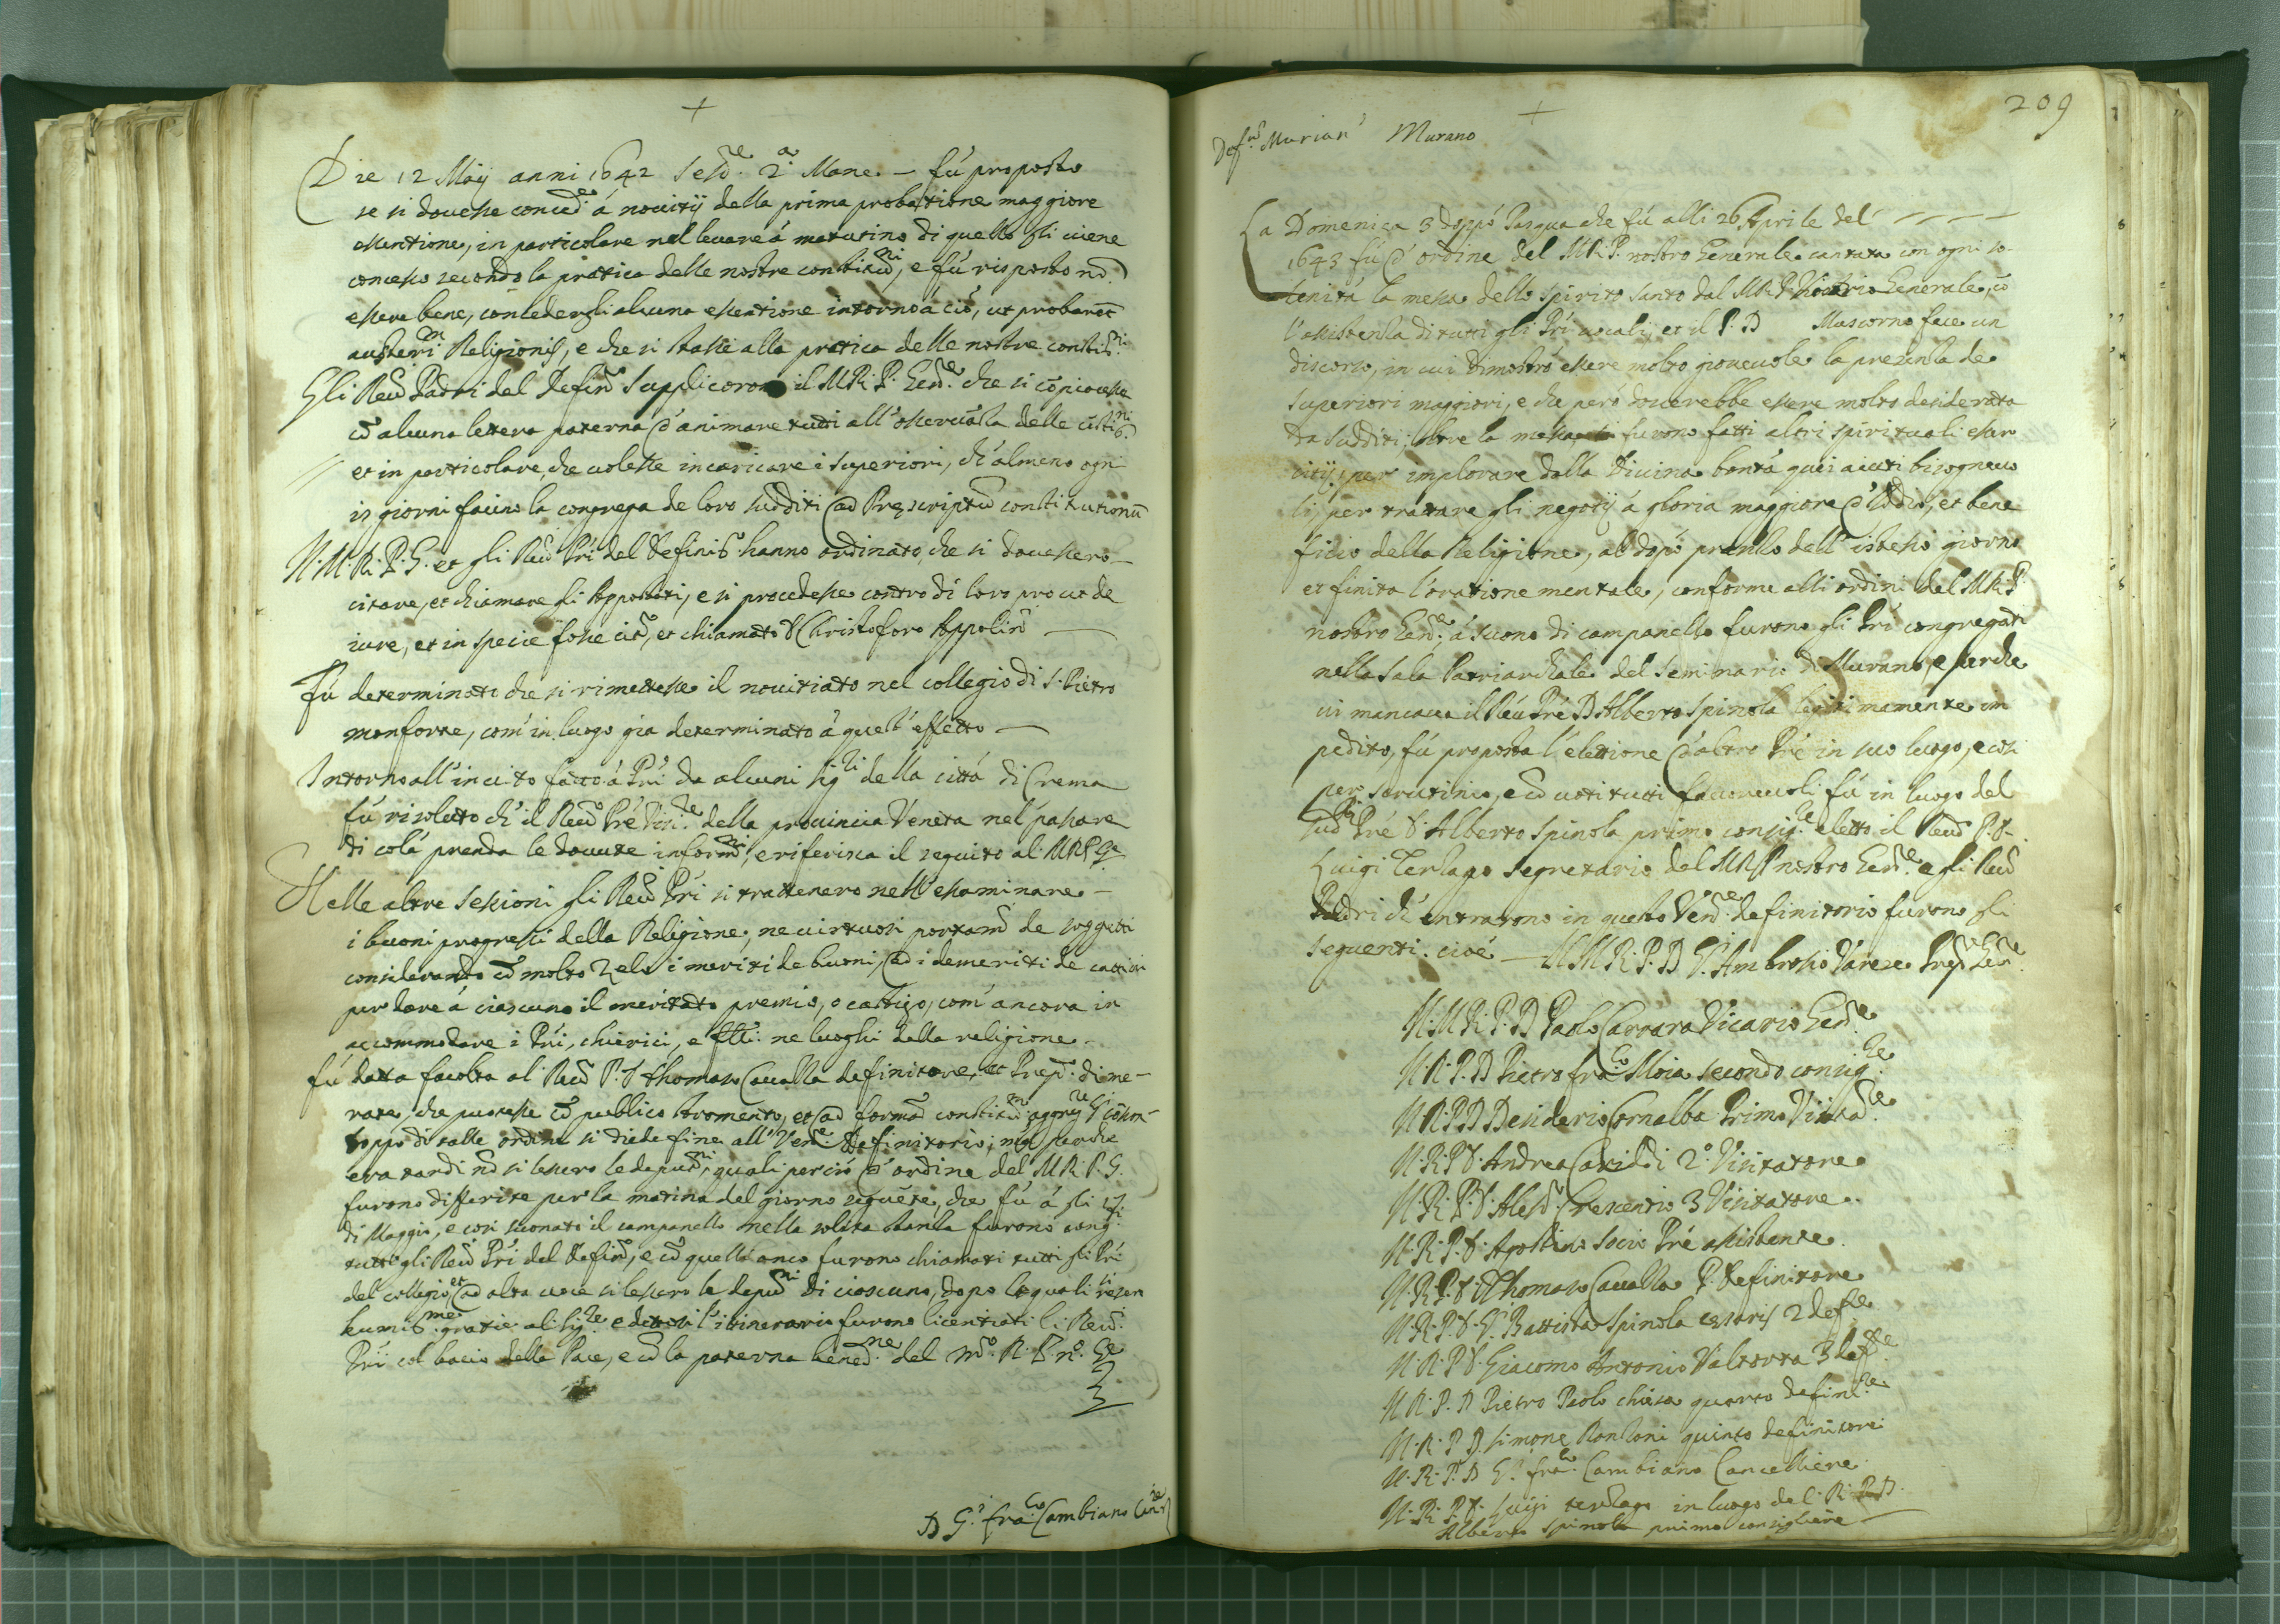 +
Die 12 Maij anni 1642 Sess.ne 2.a Mane. — fú proposto
se si douesse conced.e á nouitij della prima probattione maggiore
essentione, in particolare nel leuare á matutino di quello gli uiene
concesso secondo la pratica delle nostre constitũ.ni, e fú risposto nõ
essere bene, concedergli alcuna essentione intorno á ciò, ut probaret
Religionis, e che si stasse alla pratica delle nostre constit.ni
Gli Reu.di Padri del Defin.o Supplicorono il M.R.P. Gen.le che si cõpiacesse
cõ alcuna lettera paterna d'animare tutti all'osseruãza delle cõstit.ni
et in particolare, che uolesse incaricare i Superiori, ch'almeno ogni
15 giorni facino la congrega de loro sudditi ad Prescriptũ constitutionũ
Il M. R. P. G. et gli Reu.di Pri del Definit.o hanno ordinato, che si douessero
citare, et chiamare gli Appostati, e si procedesse contro di loro prout de
iure, et in specie fosse cit.o, et chiamato D Christoforo Appolin.o —
Fú determinato che si rimettesse il nouitiato nel collegio di S. Pietro
monforte, com' in luogo gia determinato á quest' effetto —
Intorno all'inuito fatto á Pri da alcuni sig.ri della cittá di Crema
fú risoluto ch' il Reu.do Pré Visi.re della prouincia Veneta nel passare
di colá prenda le douute inform.ni, e riferisca il seguito al M R P G.e
Nelle altre sessioni gli Reu.di Pri si trattenero nell'essaminare —
i buoni progressi della Religione, ne uirtuosi portam.ti de soggetti
considerando cõ molto zelo i meriti de buoni, ad i demeriti de cattiui
per dare á ciascuno il meritato premio, o castigo, com' ancora in
accommodare i Pri, chierici, e flli. ne luoghi della religione —
fú data facolta al Reu.do P. D Thomaso Caualla definitore, et Prep.to di me-
rate, che puotesse cõ publico stromento, et ad formã constitũ.m
Doppo di talle ordine si diede fine all' Ven.le Definitorio; ma perche
era tardi nõ si lessero le deput.ni, quali perciò d' ordine del M. R. P. G.
furono differite per la matina del giorno seguẽte, che fú á gli 15
di Maggio, e cosi suonato il campanello nella solita stanza furono cong.ti
tutti gli Reu.di Pri del Defin.o, e cõ quelli anco furono chiamati tutti gli Pri
del collegio, et ad alta uoce si lessero le deput.ni di ciascuno, dopo le quali si resero
humiliss.me gratie al sig.re e dettosi l'itinerario furono licentiati li Reu.di
Prii col bacio della Pace, e cõ la paterna bened.ne del M.o R. P. n.o G.e
D G. Fra.co Cambiano Canc.re
209
+
Def.o Murian.o Murano
La Domenica 3 doppò Pasqua che fú alli 26 Aprile del
1643 fú d' ordine del M.R.P. nostro Generale cantata con ogni so-
lenitá la messa dello spirito Santo dal M.R.P. Vicario Generale, cõ
l'assistenza di tutti gli Pri uocali, et il P. D Mascorno fece un
discorso, in cui dimostró essere molto gioueuole la presenza de
Superiori maggiori, e che peró douerebbe essere molto desiderata
da Sudditi; oltre la messa furono fatti altri spirituali esser
citij, per implorare dalla Diuina bontá quei aiuti bisogneuo
li, per trattare gli negotij á gloria maggiore d'Iddio, et bene
ficio della Religione, al dopó pranso dell'istesso giorno
et finita l'oratione mentale, conforme alli ordini del M.R.P.
nostro Gen.le á suono di campanello furono gli Pri congregati
nella Sala Patriarchale del Seminario di Murano, e perche
ui mancaua il Reu.do Pré D Alberto Spinola legitimamente im
pedito, fú proposta l'elettione d'altro Pré in suo luogo, e cosi
per scrutinio, e cõ uoti tutti fauoreuoli fú in luogo del
sud.to Pré D. Alberto Spinola primo consig.re eletto il Reu.do P. D.
Luigi Terzago Segretario del M R P nostro Gen.le e gli Reu.di
Padri ch' entrarono in questo Ven.le definitorio furono gli
seguenti. cioé — Il M. R. P. D G. Ambrosio Varese Prep.to Gen.le
Il M. R. P. D Paolo Carrara Vicario Gen.le
Il R. P. D Pietro fra.co Moia secondo consig.re
Il R. P. D Desiderio Cornalba Primo Visita.re
Il R. P D. Andrea Cariddi 2.o Visitatore
Il R. P. D. Aless.o Crescentio 3 Visitatore.
Il R. P. D. Agostino Socio Pré assistente.
Il R. P. D. Thomaso Cauallo P. Definitore
Il R. P. D. G. Battista Spinola cesaris 2 def.re
Il R. P D. Giacomo Antonio Valtorta 3 def.re
Il R. P. D Pietro Paolo chiesa quarto defini.re
Il R. P D. Simone Ronzoni quinto definitore
Il R. P. D G. fra.co Cambiano Cancelliere.
Il R. P. D. Luigi terzago in luogo del R. P. D.
Alberto Spinola primo consigliere —